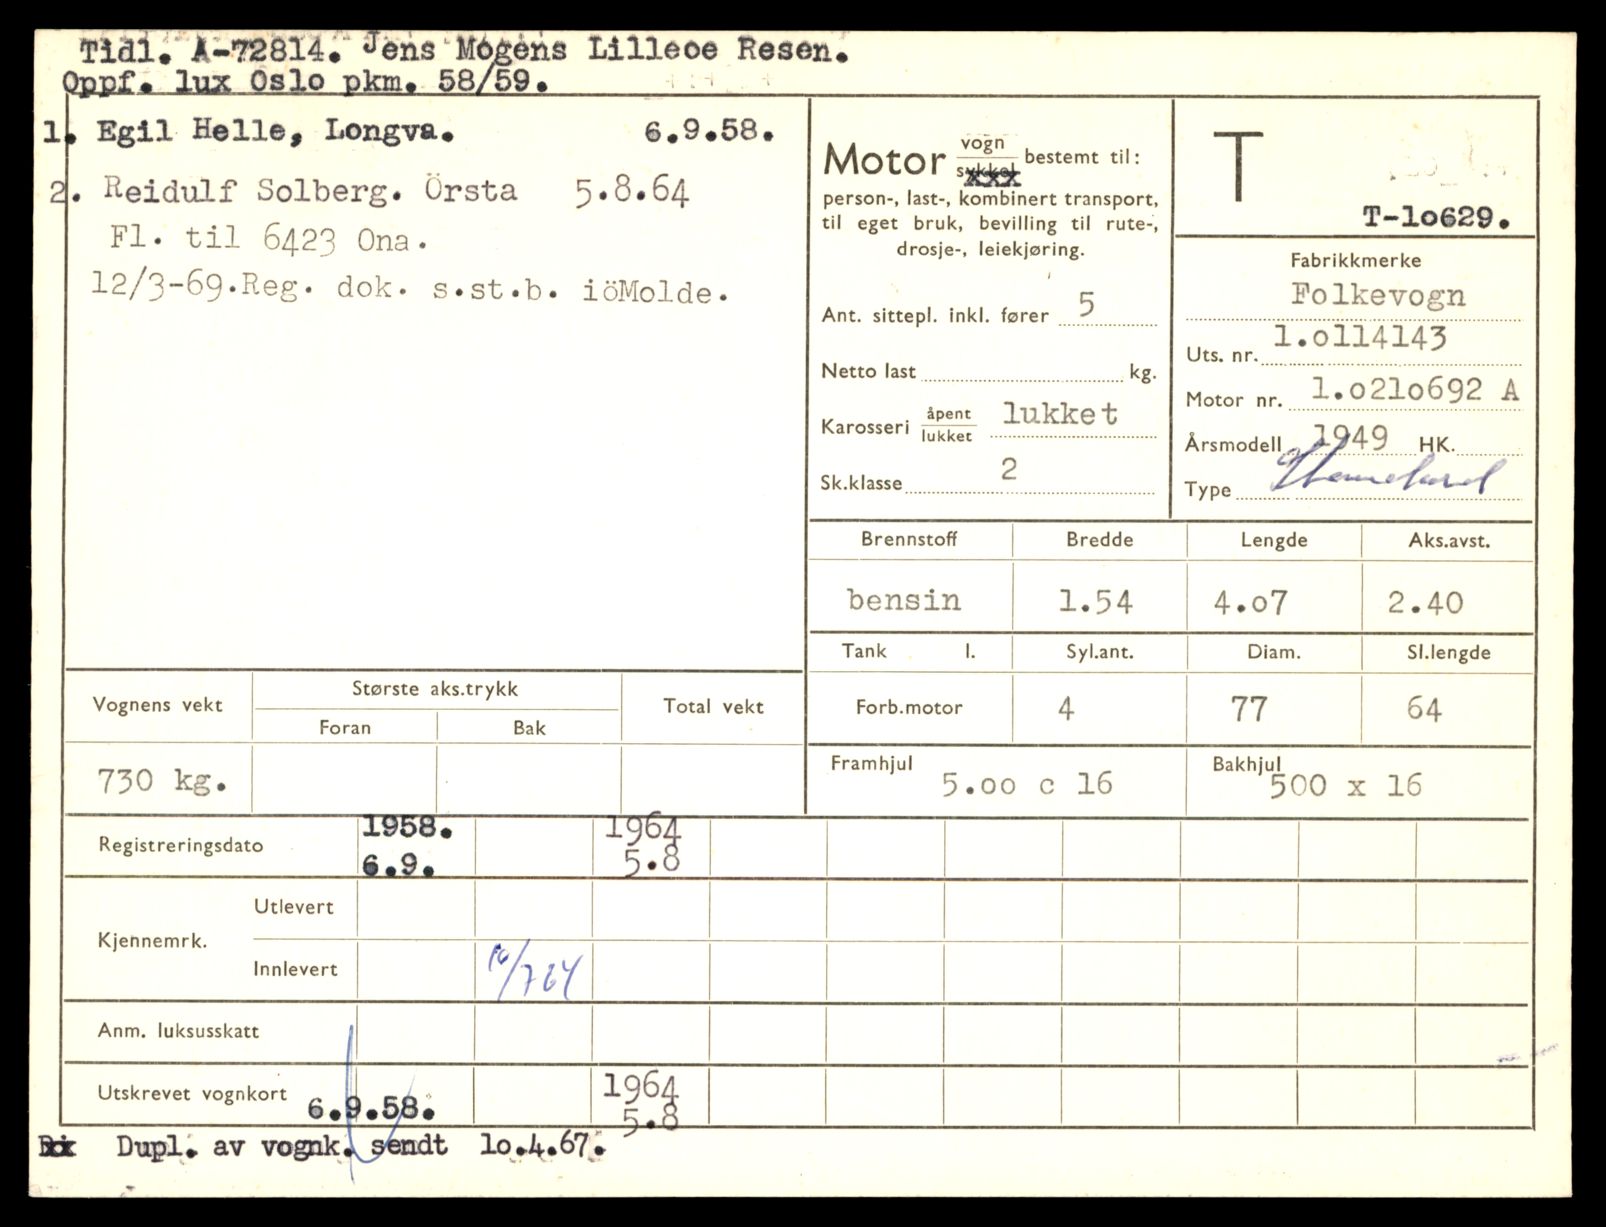 Tidl. A-72814. Jens Mogens Lilleoe Resen.
Oppf. lux Oslo pkm. 58/59.
1. Egil Helle, Longva. 6.9.58.
2. Reidulf Solberg. Örsta 5.8.64
Fl. til 6423 Ona.
12/3-69.Reg. dok. s.st.b. iöMolde.
Motor vogn bestemt til:
person-, last-, kombinert transport,
til eget bruk, bevilling til rute-,
drosje-, leiekjøring.
Ant. sittepl. inkl. fører 5
Netto last kg.
Karosseri åpent lukket lukket
Sk.klasse 2
T
T-lo629.
Fabrikkmerke
Folkevogn
Uts. nr. 1.o114143
Motor nr. 1.o21o692 A
Årsmodell 1949 HK.
Type
Brennstoff Bredde Lengde Aks.avst.
bensin 1.54 4.o7 2.40
Tank l. Syl.ant. Diam. Sl.lengde
Forb.motor 4 77 64
Framhjul 5.oo c 16 Bakhjul 500 x 16
Vognens vekt Største aks.trykk Total vekt
Foran Bak
730 kg.
Registreringsdato 1958. 1964
6.9. 5.8
Kjennemrk. Utlevert
Innlevert 10/7 64
Anm. luksusskatt
Utskrevet vognkort 6.9.58. 1964
5.8
Dupl. av vognk. sendt lo.4.67.